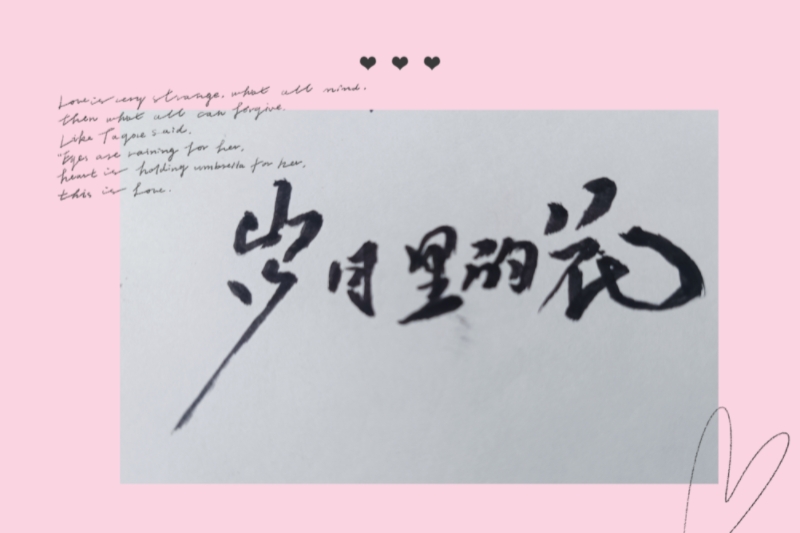 Love is very strange, what all mind.
then what all can forgive.
Like Tagore said,
"Eyes are raining for her,
heart is holding umbrella for her,
this is love.
岁月里的花